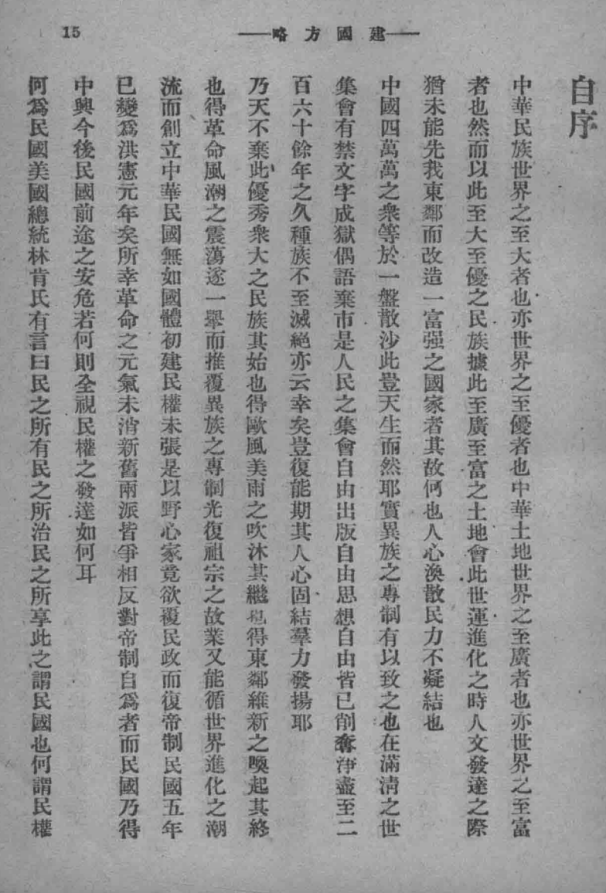 15
建國方略
自序
中華民族世界之至大者也亦世界之至優者也中華土地世界之至廣者也亦世界之至富
者也然而以此至大至優之民族據此至廣至富之土地會此世運進化之時人文發達之際
猶未能先我東鄰而改造一富强之國家者其故何也人心渙散民力不凝結也
中國四萬萬之衆等於一盤散沙此豈天生而然耶實異族之專制有以致之也在滿清之世
集會有禁文字成獄偶語棄市是人民之集會自由出版自由思想自由皆已削奪淨盡至二
百六十餘年之久種族不至滅絕亦云幸矣豈復能期其人心固結羣力發揚耶
乃天不棄此優秀衆大之民族其始也得歐風美雨之吹沐其繼也得東鄰維新之喚起其終
也得革命風潮之震蕩遂一舉而推覆異族之專制光復祖宗之故業又能循世界進化之潮
流而創立中華民國無如國體初建民權未張是以野心家竟欲覆民政而復帝制民國五年
已變爲洪憲元年矣所幸革命之元氣未消新舊兩派皆爭相反對帝制自爲者而民國乃得
中興今後民國前途之安危若何則全視民權之發達如何耳
何爲民國美國總統林肯氏有言曰民之所有民之所治民之所享此之謂民國也何謂民權